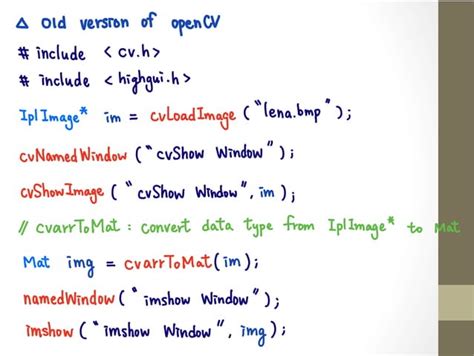 △ Old version of openCV
# include < cv.h>
# include < highgui.h>
IplImage* im = cvLoadImage ("lena.bmp");
cvNamedWindow ("cvShow Window");
cvShowImage ("cvShow Window", im);
// cvarrToMat : convert data type from IplImage* to Mat
Mat img = cvarrToMat(im);
namedWindow("imshow Window");
imshow("imshow Window", img);